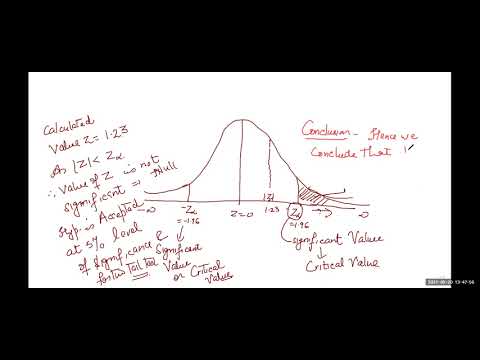 Calculated
value Z = 1.23
As |Z| < Zα
∴ value of Z is not
significant ⇒ Null
Hyp. is Accepted
at 5% level
of significance
for two Tail Test
-∞
-Zα
=-1.96
Significant
Value
or Critical
Value
Z=0
|Z|
1.23
Zα
=1.96
∞
significant Value
Critical Value
Conclusion - Hence we
Conclude That
2021-05-20 13:47:56